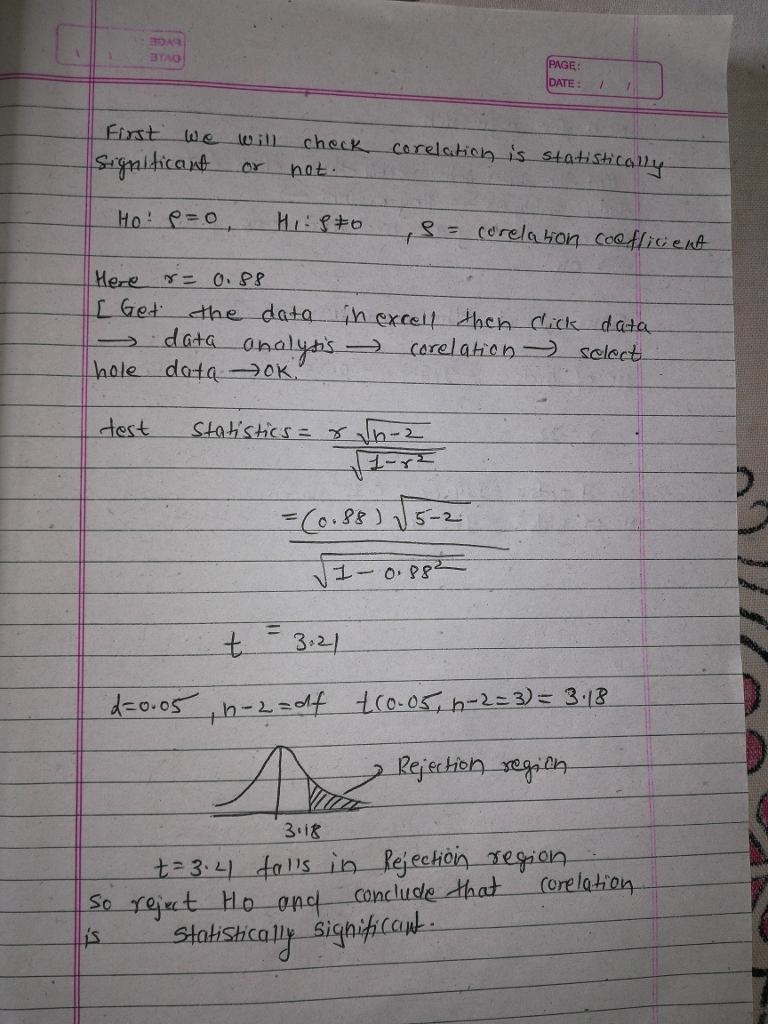 PAGE:
DATE: / /
First we will check corelation is statistically
significant or not.
Ho: ρ=0, H1: ρ≠0 , ρ = corelation coefficient
Here r= 0.88
[ Get the data in excell then click data
→ data analysis → corelation → select
hole data → OK.
test statistics = r √n-2
√1-r²
= (0.88) √5-2
√1-0.88²
t = 3.21
α=0.05, n-2=df t(0.05, n-2=3) = 3.18
Rejection region
3.18
t=3.21 falls in Rejection region
so reject Ho and conclude that corelation
is statistically significant.